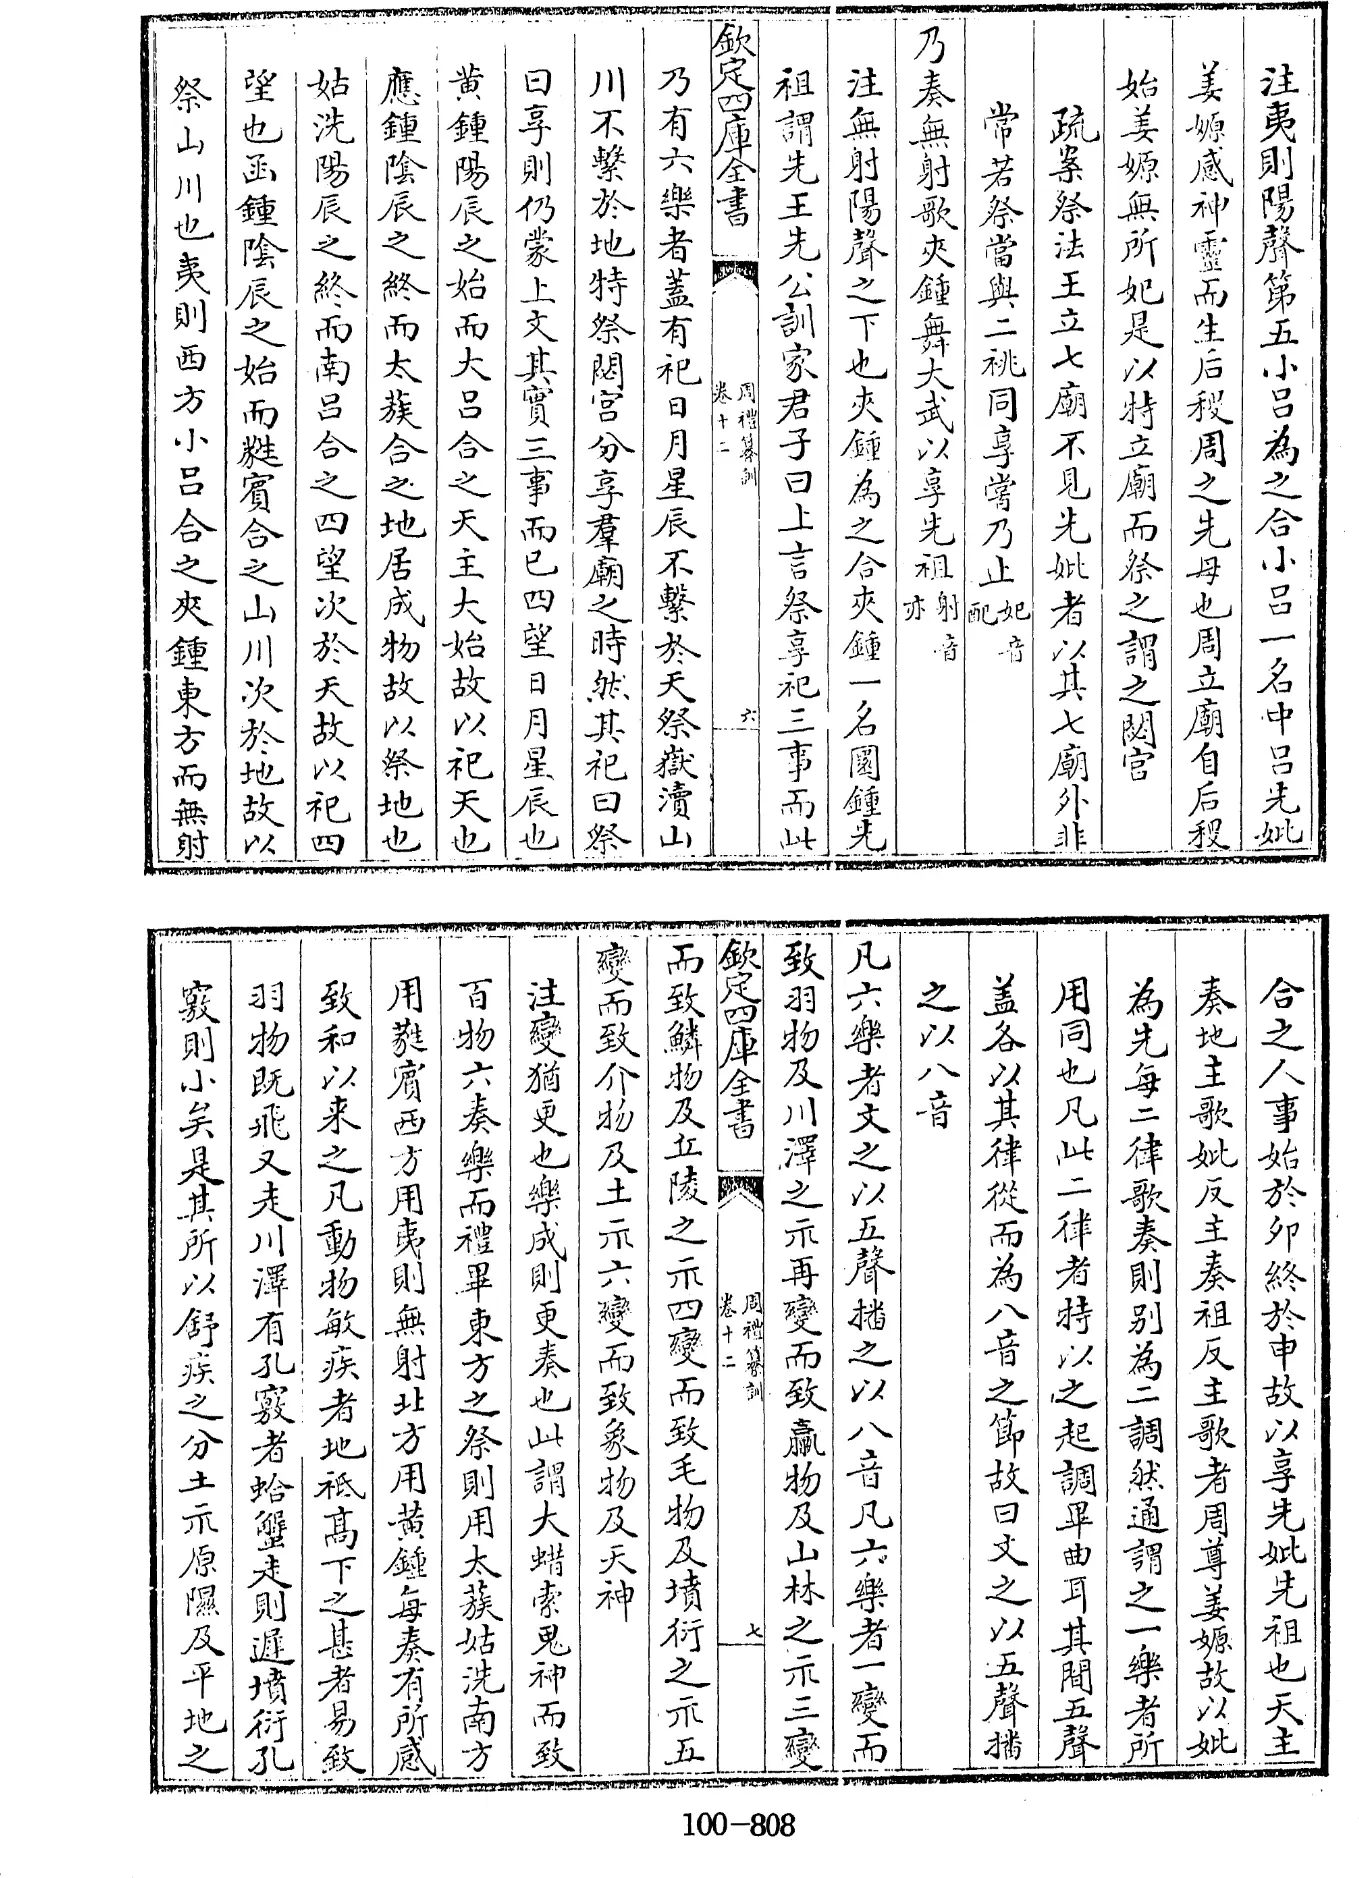 注夷則陽聲第五小呂為之合小呂一名中呂先妣
姜嫄感神靈而生后稷周之先母也周立廟自后稷
始姜嫄無所妃是以特立廟而祭之謂之閟宫
疏案祭法王立七廟不見先妣者以其七廟外非
常若祭當與二祧同享嘗乃止妃音配
乃奏無射歌夾鍾舞大武以享先祖射音亦
注無射陽聲之下也夾鍾為之合夾鍾一名圜鍾先
祖謂先王先公訓家君子曰上言祭享祀三事而此
欽定四庫全書
周禮纂訓
卷十二
六
乃有六樂者蓋有祀日月星辰不繫於天祭嶽瀆山
川不繫於地特祭閟宮分享羣廟之時然其祀曰祭
曰享則仍蒙上文其實三事而已四望日月星辰也
黃鍾陽辰之始而大呂合之天主大始故以祀天也
應鍾陰辰之終而太蔟合之地居成物故以祭地也
姑洗陽辰之終而南呂合之四望次於天故以祀四
望也函鍾陰辰之始而蕤賓合之山川次於地故以
祭山川也夷則西方小呂合之夾鍾東方而無射
合之人事始於卯終於申故以享先妣先祖也天主
奏地主歌妣反主奏祖反主歌者周尊姜嫄故以妣
為先每二律歌奏則别為二調然通謂之一樂者所
用同也凡此二律者特以之起調畢曲耳其間五聲
盖各以其律從而為八音之節故曰文之以五聲播
之以八音
凡六樂者文之以五聲播之以八音凡六樂者一變而
致羽物及川澤之示再變而致臝物及山林之示三變
欽定四庫全書
周禮纂訓
卷十二
七
而致鱗物及丘陵之示四變而致毛物及墳衍之示五
變而致介物及土示六變而致象物及天神
注變猶更也樂成則更奏也此謂大蜡索鬼神而致
百物六奏樂而禮畢東方之祭則用太蔟姑洗南方
用蕤賓西方用夷則無射北方用黃鍾每奏有所感
致和以来之凡動物敏疾者地祇高下之甚者易致
羽物既飛又走川澤有孔竅者蛤蟹走則遲墳衍孔
竅則小矣是其所以舒疾之分土示原隰及平地之
100-808